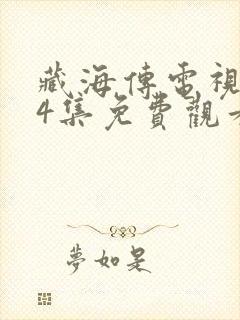 藏海傳電視
4集免費觀看
夢如是